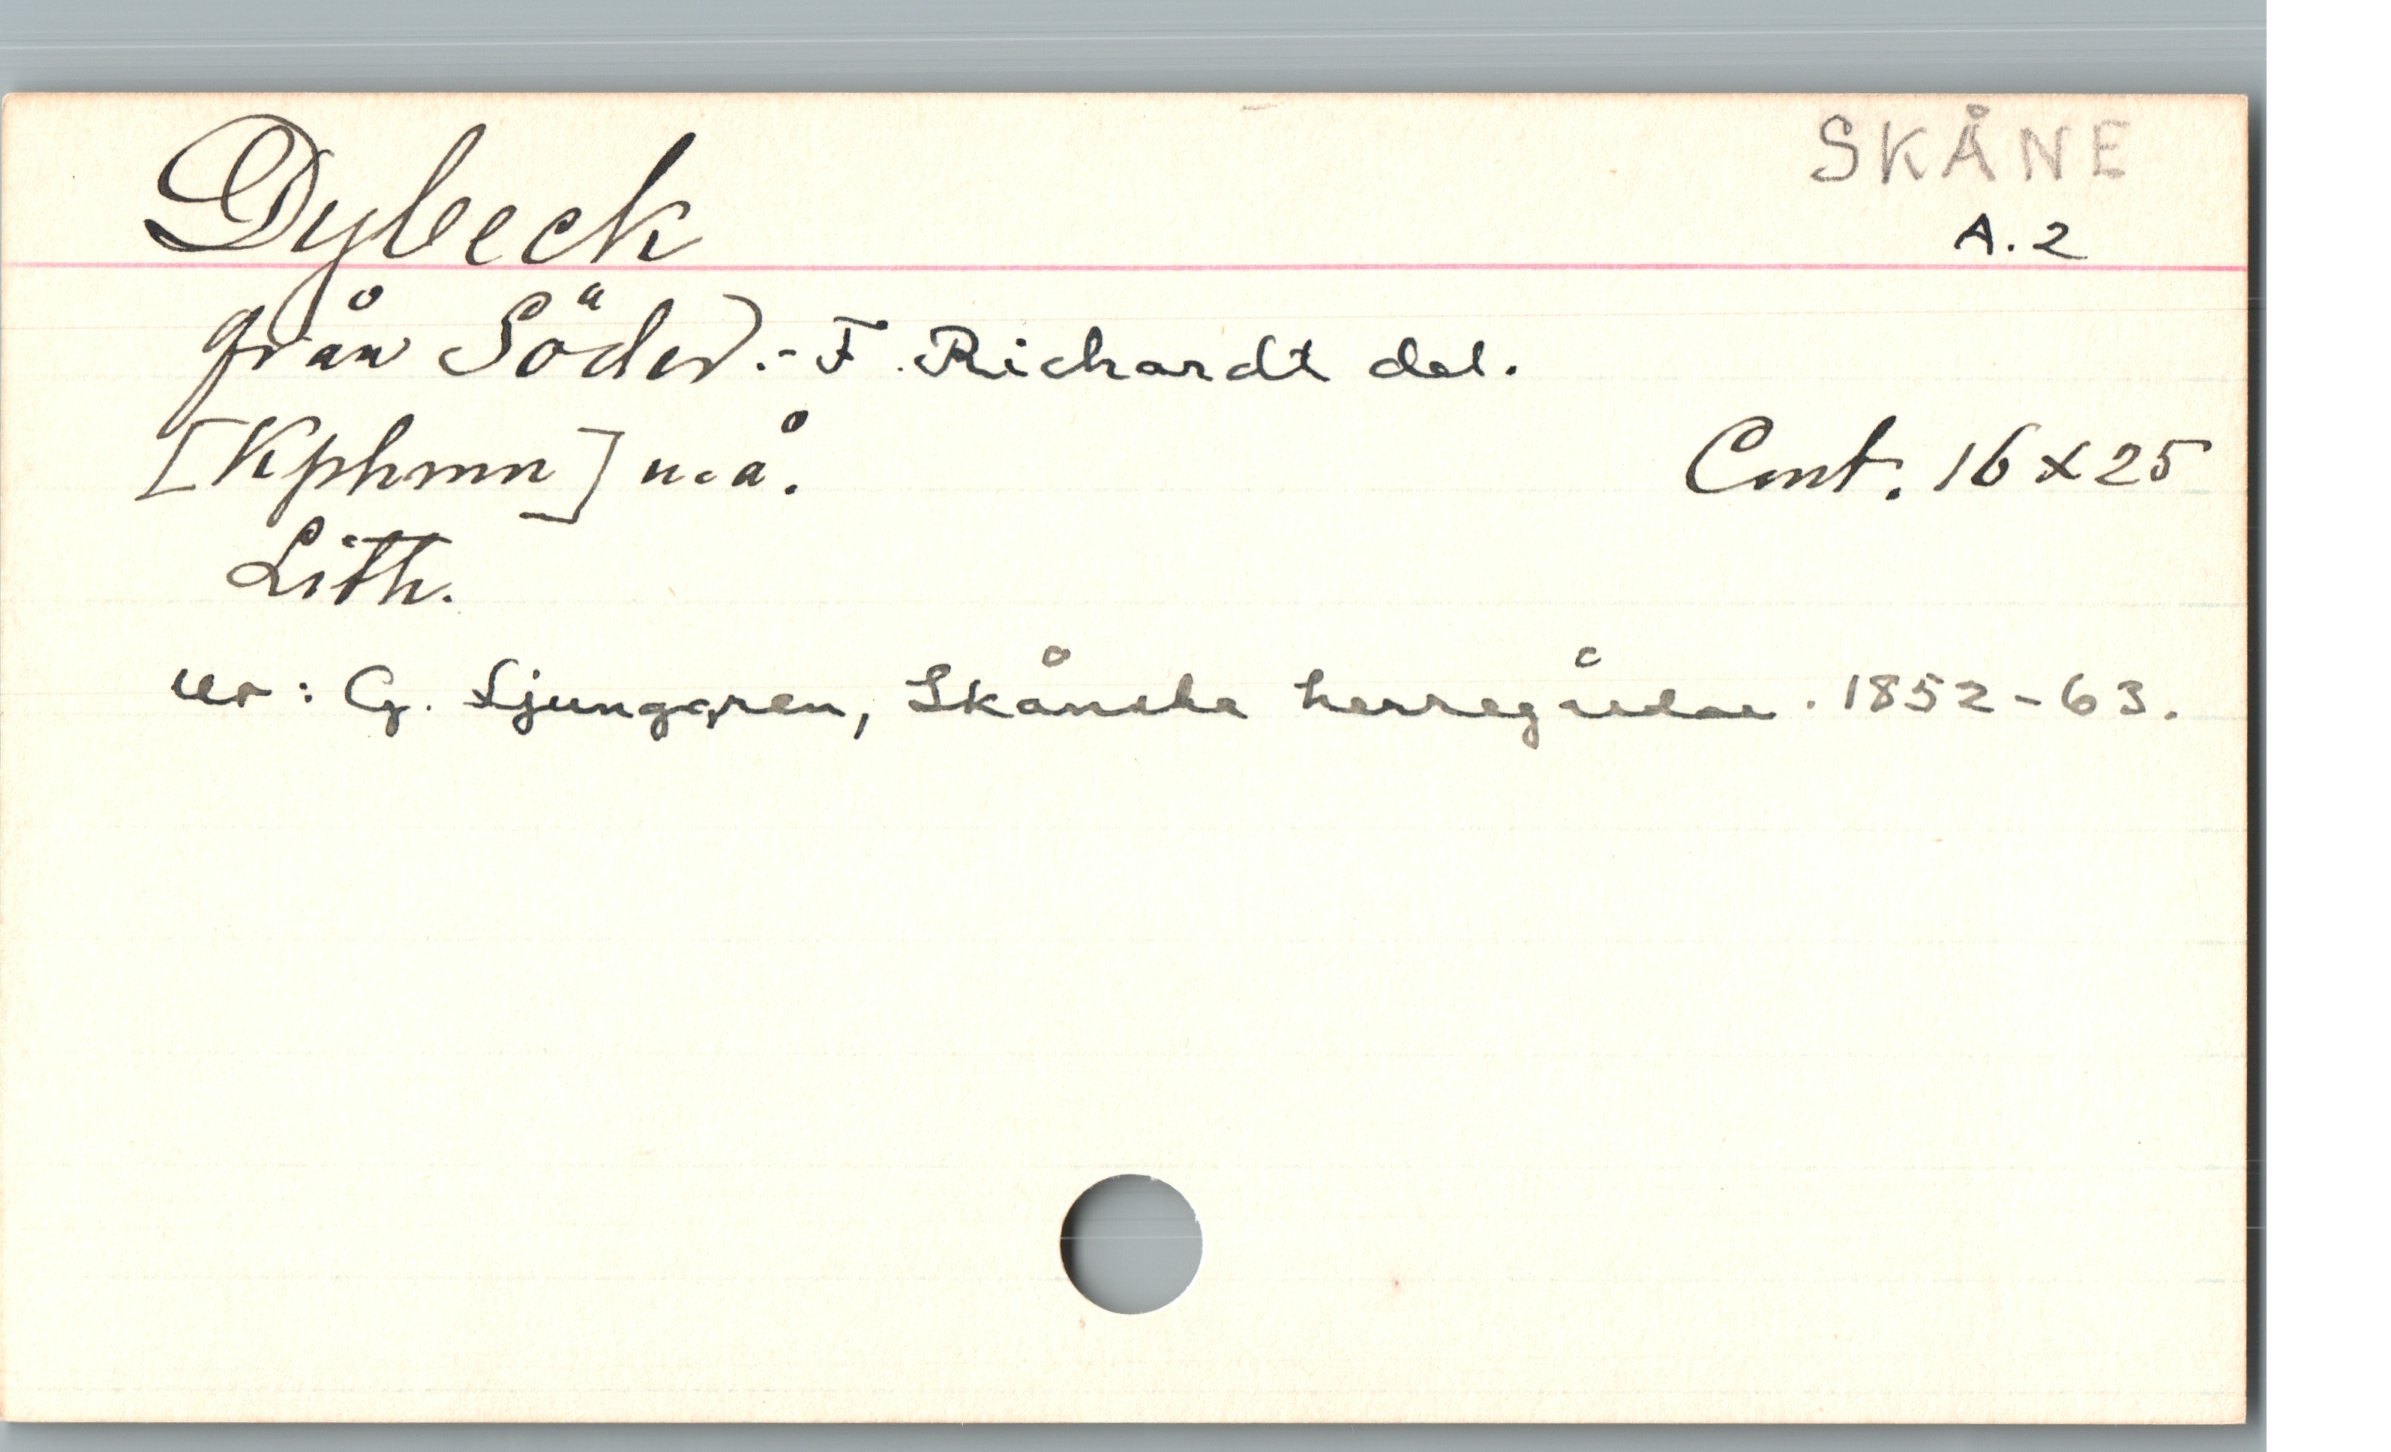 SKÅNE
Dybeck
A.2
från Söder. - F. Richardt del.
[Kphmn] u. å. Cmt. 16 x 25
Lith.
ur: G. Ljunggren, Skånska herregårdar. 1852-63.